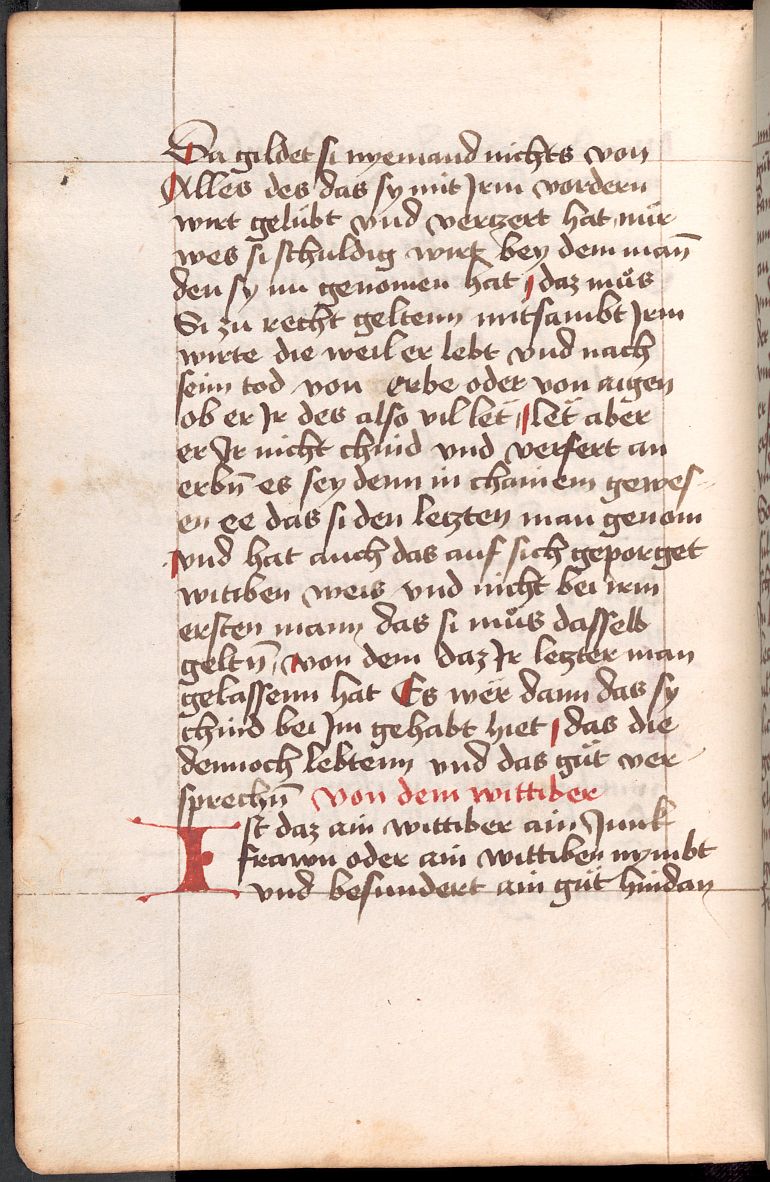 Da gildet si nyemand nichts von
Alles des das sy mit Jrm vordern
wirt gelübt vnd verczert hat nür
wes si schuldig wirt bey dem man̄
den sy nu genomen hat daz mūs
Si zu recht geltenn mitsambt Jrm
wirte die weil er lebt vnd nach
seim tod von erbe oder von aigen
ob er Jr des also vil let let aber
er Jr nicht chind vnd verfert an
erbn̄ es sey denn in chainem gewes-
en ee das si den letzten man genom
vnd hat auch das auf sich geporget
witiben weis vnd nicht bei irm
ersten mann das si mūs dasselb
geltn̄ von dem daz Jr letzter man
gelassenn hat Es wër dann das sy
chind bei Jm gehabt hiet das die
dennoch lebtenn vnd das gūt ver-
sprechn̄ von dem wittiber
Ist daz ain wittiber ain Junk
frawn oder ain wittiben nymbt
vnd besundert ain gūt hindan